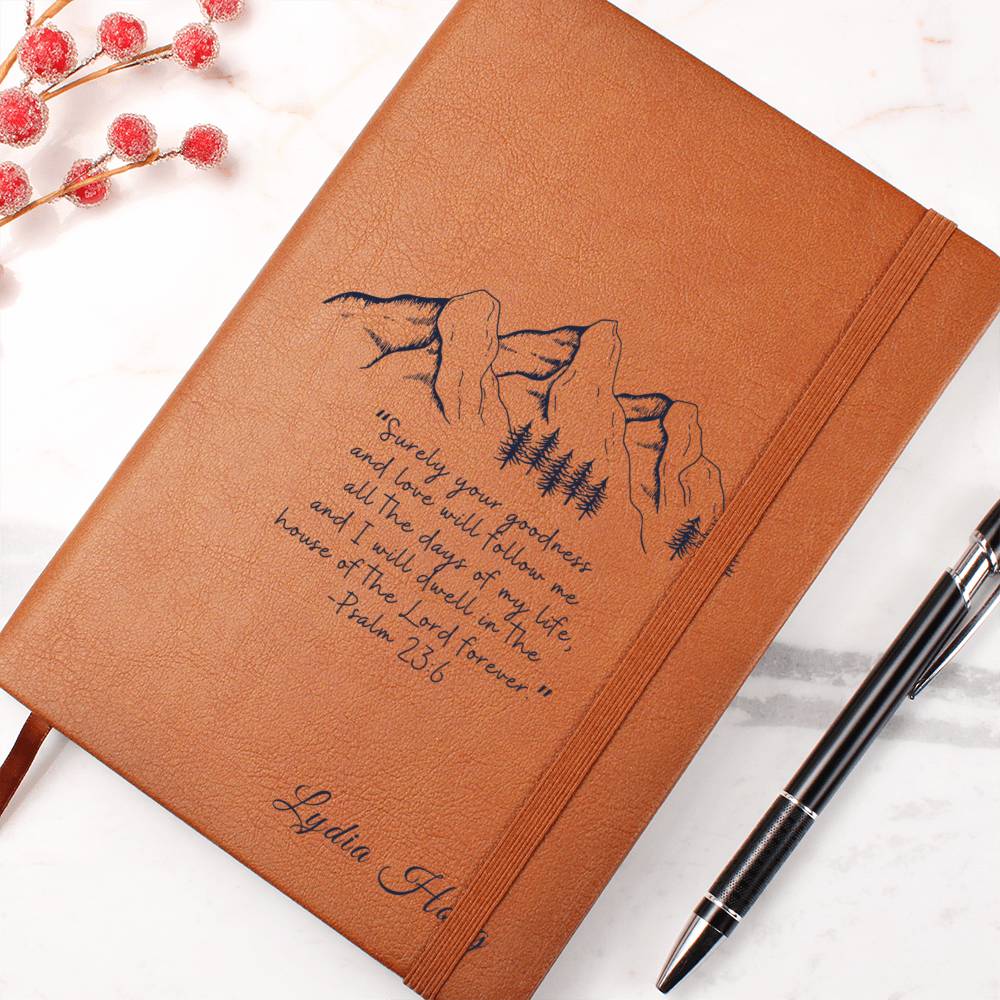 "Surely your goodness
and love will follow me
all the days of my life,
and I will dwell in the
house of the Lord forever."
-Psalm 23:6
Lydia